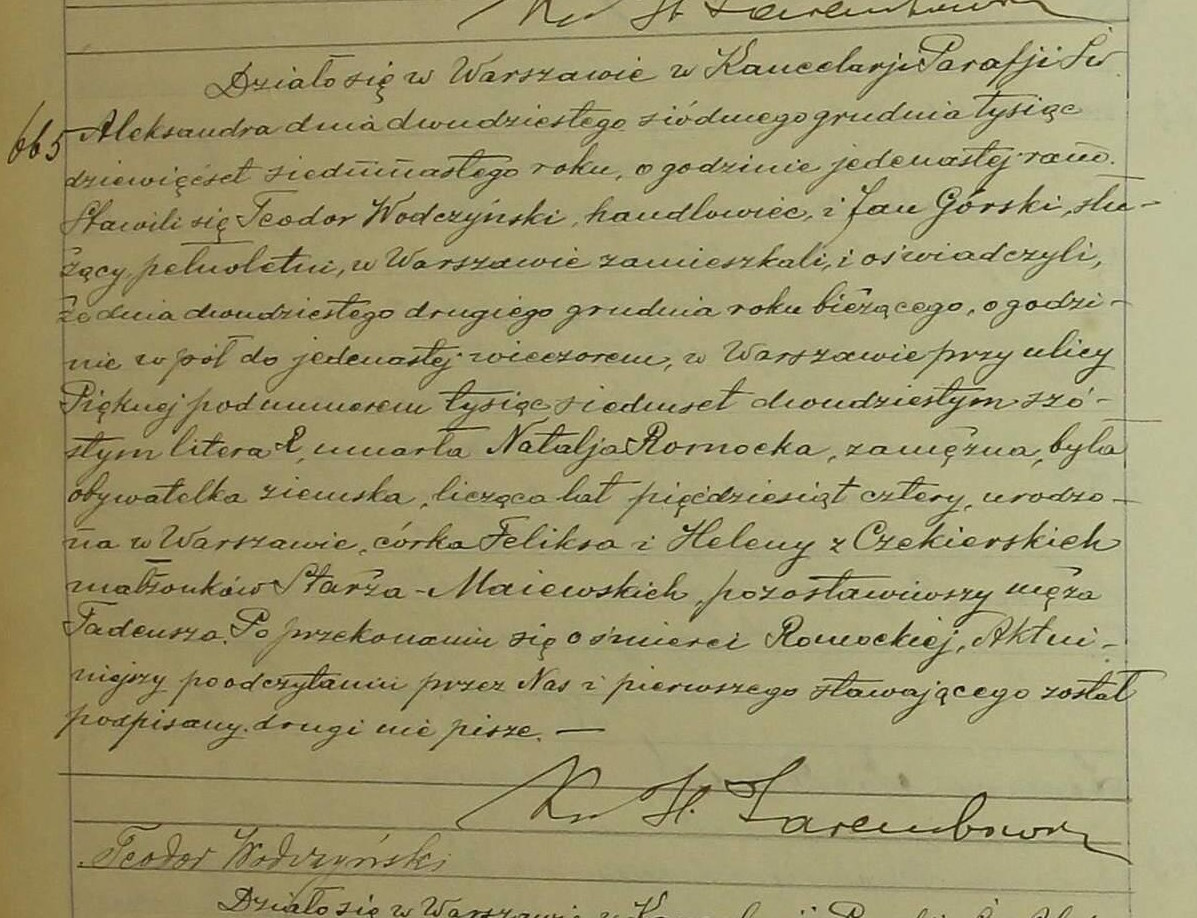 Ks H. Zarembowicz
Działo się w Warszawie w Kancelarji Parafji Św
665 Aleksandra dnia dwudziestego siódmego grudnia tysiąc
dziewięćset siedmnastego roku, o godzinie jedenastej rano.
Stawili się Teodor Wodczyński, handlowiec, i Jan Górski, słu-
żący, pełnoletni, w Warszawie zamieszkali, i oświadczyli,
że dnia dwudziestego drugiego grudnia roku bieżącego, o godzi-
nie w pół do jedenastej wieczorem, w Warszawie przy ulicy
Pięknej pod numerem tysiąc siedmset dwudziestym szó-
stym litera umarła Natalja Romocka, zamężna, była
obywatelka ziemska, licząca lat pięćdziesiąt cztery, urodzo-
na w Warszawie, córka Feliksa i Heleny z Czekierskich
małżonków Starża-Maiewskich, pozostawiwszy męża
Tadeusza. Po przekonaniu się o śmierci Romockiej, Akt ni-
niejszy po odczytaniu przez Nas i pierwszego stawającego został
podpisany. drugi nie pisze. —
Ks H. Zarembowicz
Teodor Wodczyński
Działo się w Warszawie w Kancelarji Parafji